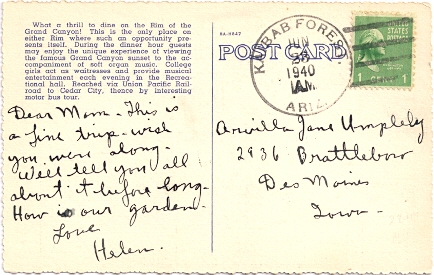 What a thrill to dine on the Rim of the
Grand Canyon! This is the only place on
either Rim where such an opportunity pre-
sents itself. During the dinner hour guests
may enjoy the unique experience of viewing
the famous Grand Canyon sunset to the ac-
companiment of soft organ music. College
girls act as waitresses and provide musical
entertainment each evening in the Recrea-
tional hall. Reached via Union Pacific Rail-
road to Cedar City, thence by interesting
motor bus tour.
Dear Mom - This is
a fine trip - wish
you were along.
We'll tell you all
about it before long.
How is our garden.
Love
Helen.
POST CARD
KAIBAB FOREST
JUN
1940
AM
ARIZ.
UNITED
STATES
POSTAGE
1 1
Arvilla Jane Umpleby
2936 Brattlebow
Des Moines
Iowa -